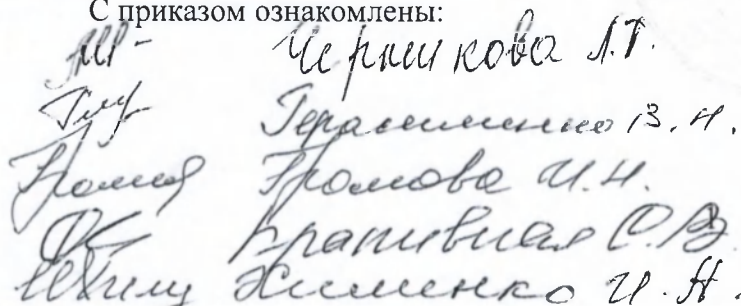 С приказом ознакомлены:
Черникова Л.Т.
Герасименко В.Н.
Громова И.Н.
Крапивная О.В.
Хименко И.Н.